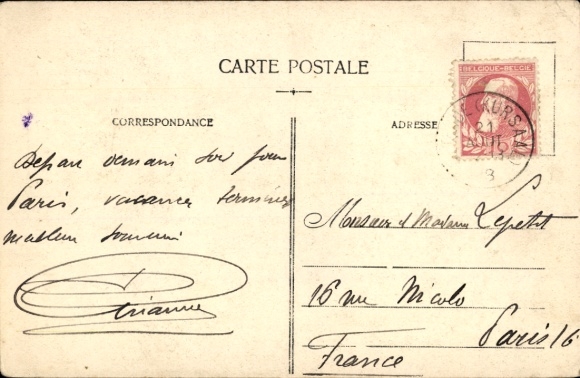 CARTE POSTALE
CORRESPONDANCE
ADRESSE
BELGIQUE-BELGIE
KURSAAL
21
3
Départ demain soir pour
Paris, vacances terminées
meilleur souvenir
Monsieur et Madame Lepetit
16 rue Nicolo
Paris 16
France